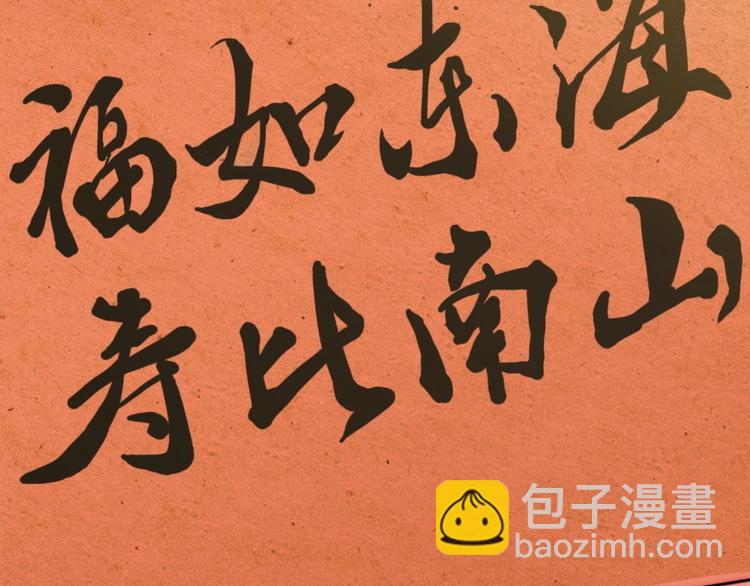 福如东海
寿比南山
包子漫畫
baozimh.com